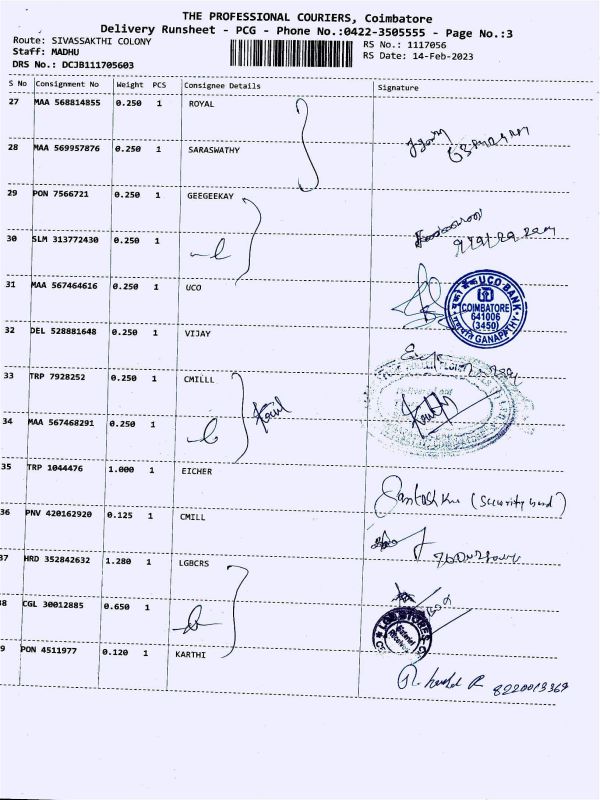 THE PROFESSIONAL COURIERS, Coimbatore
Delivery Runsheet - PCG - Phone No.:0422-3505555 - Page No.:3
Route: SIVASSAKTHI COLONY
RS No.: 1117056
Staff: MADHU
RS Date: 14-Feb-2023
DRS No.: DCJB111705603
S No Consignment No Weight PCS Consignee Details Signature
27 MAA 568814855 0.250 1 ROYAL
28 MAA 569957876 0.250 1 SARASWATHY
29 PON 7566721 0.250 1 GEEGEEKAY
30 SLM 313772430 0.250 1
31 MAA 567464616 0.250 1 UCO
UCO BANK
COIMBATORE
641006
(3450)
GANAPATHY
32 DEL 528881648 0.250 1 VIJAY
33 TRP 7928252 0.250 1 CMILLL
34 MAA 567468291 0.250 1
35 TRP 1044476 1.000 1 EICHER
(Security
36 PNV 420162920 0.125 1 CMILL
37 HRD 352842632 1.280 1 LGBCRS
38 CGL 30012885 0.650 1
9 PON 4511977 0.120 1 KARTHI
8220013369